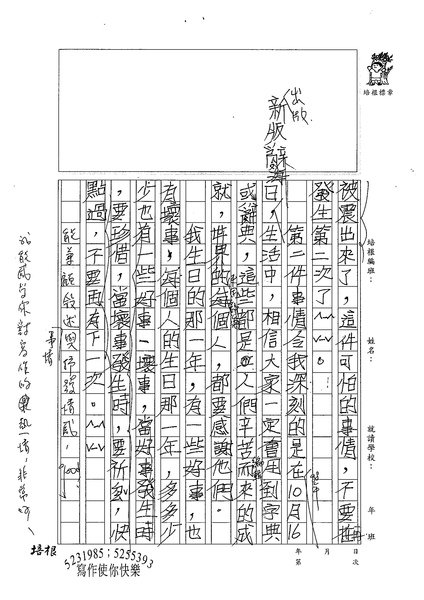 培根標章
培根編班：
姓名：
就讀學校：
年 班
年 月 日
第 次
出版
新版辭
被震出來了，這件可怕的事情，不要再
發生第二次了
第二件事情令我深刻的是在10月16
日，生活中，相信大家一定會用到字典
或辭典，這些都是人們辛苦而來的成
就，世界的每個人，都要感謝他們。
我生日的那一年，有一些好事，也
有壞事，每個人的生日那一年，多多少
少也有一些好事、壞事，當好事發生時
，要珍惜，當壞事發生時，要祈禱，快
點過，不要再有下一次。
能兼顧敘述與抒發情感。
事情
培根
5231985；5255393
寫作使你快樂